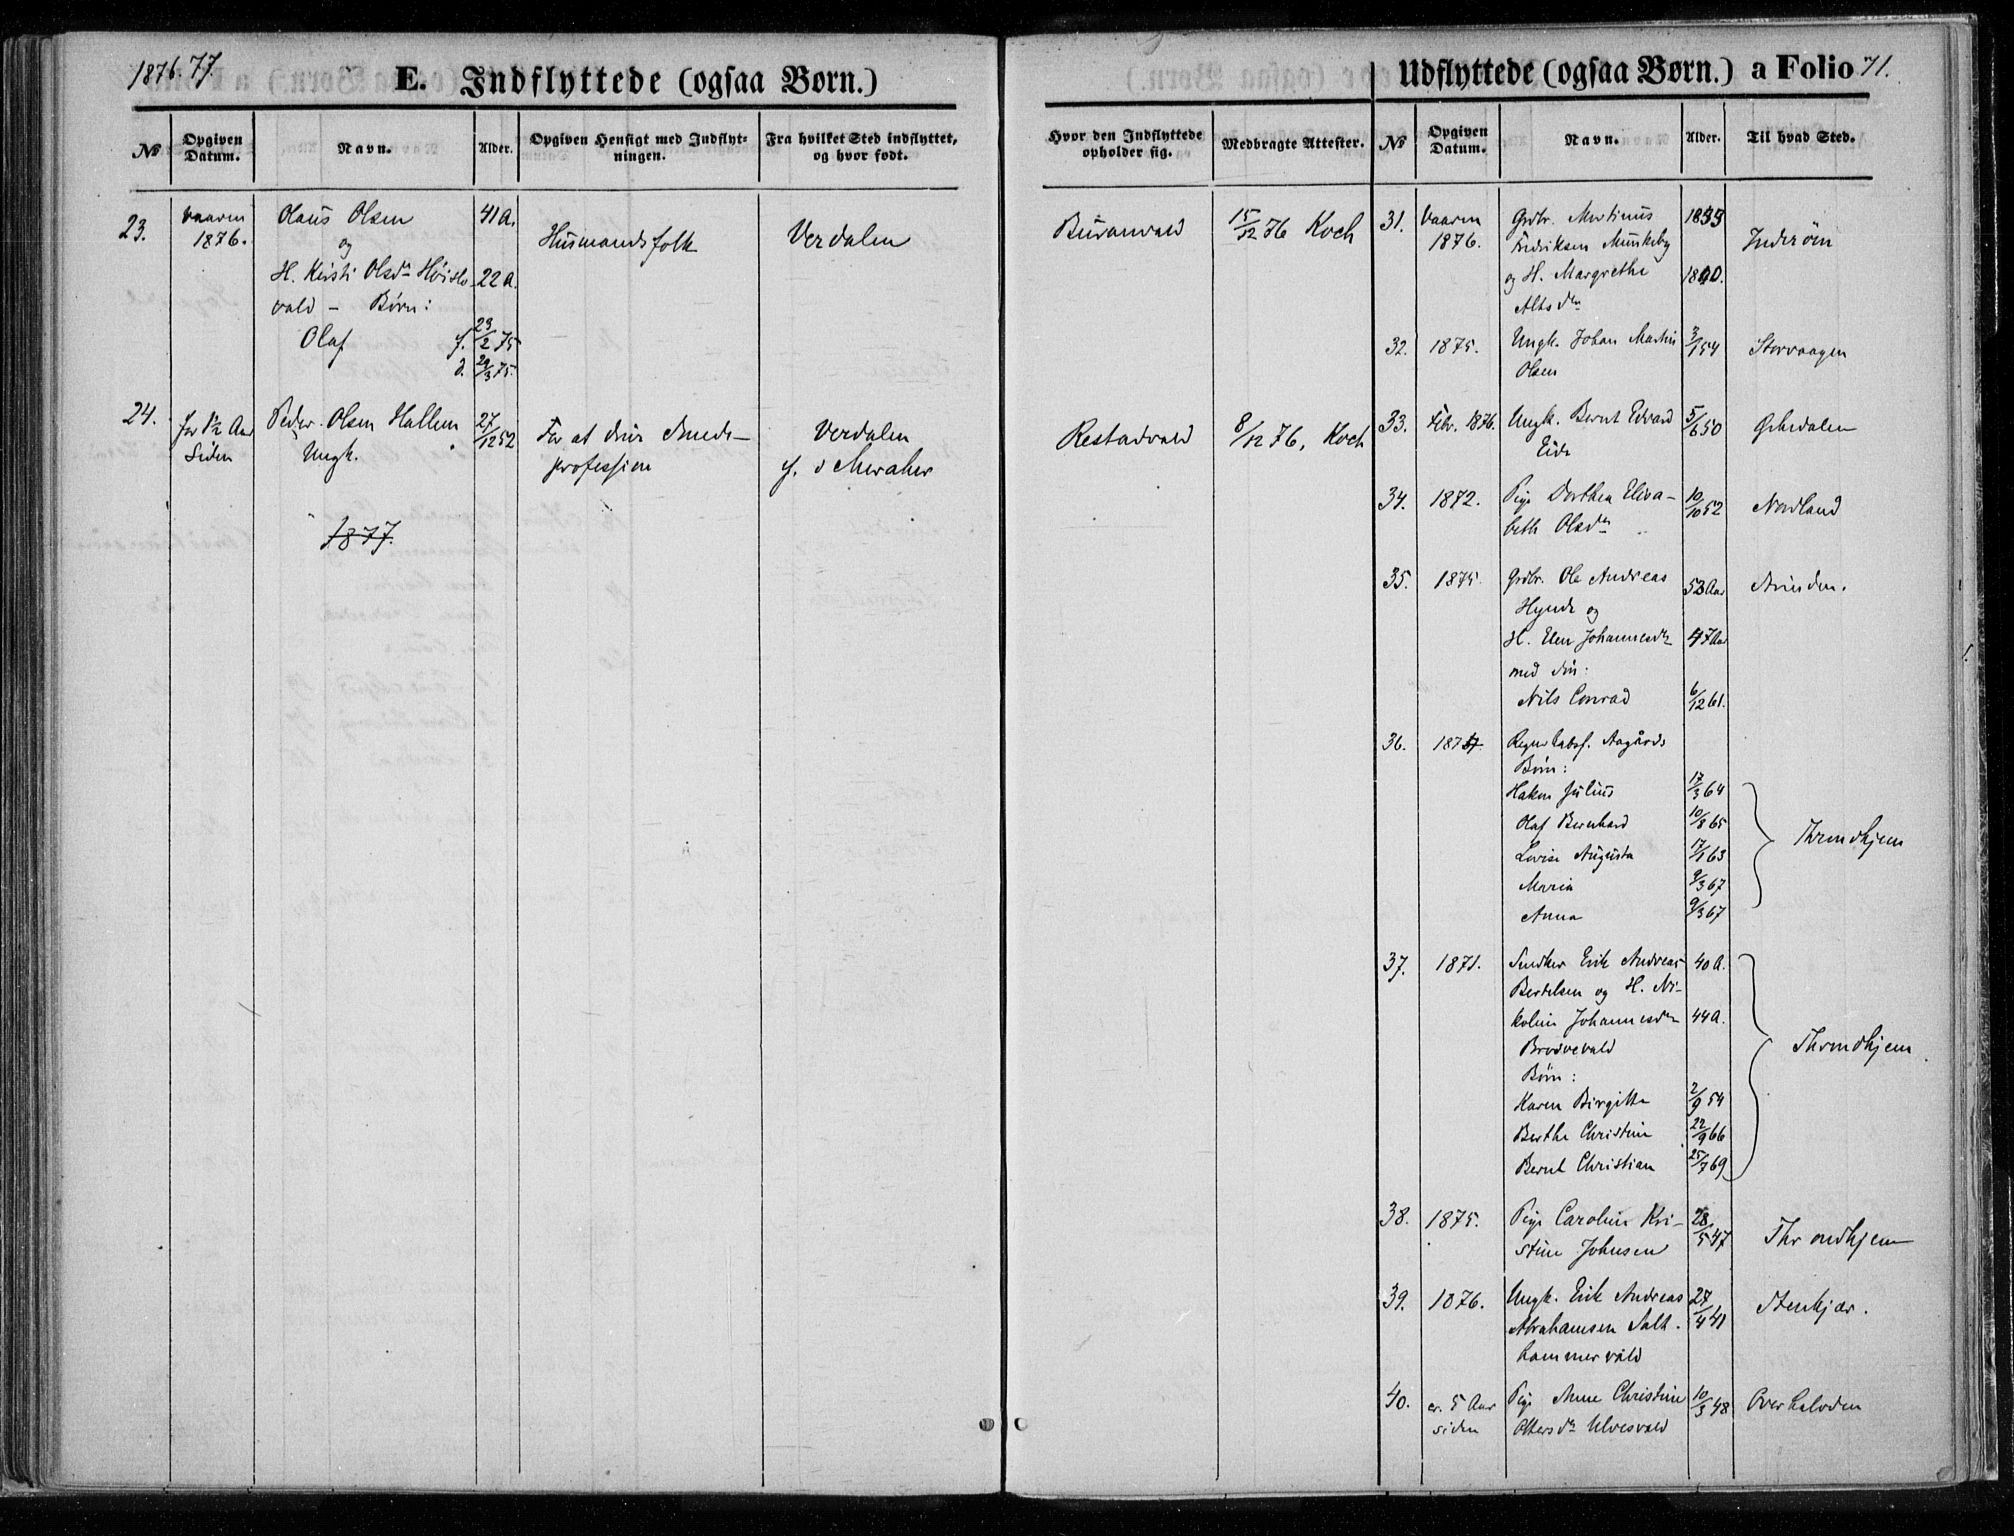 1876.77.
E. Indflyttede (ogsaa Børn.)
№
Opgiven Datum.
Navn.
Alder.
Opgiven Hensigt med Indflyt-
ningen.
Fra hvilket Sted indflyttet,
og hvor født.
23.
Vaaren
1876.
Olaus Olsen
og
H. Kirsti Olsdr
vald – Børn:
Olaf
41 A.
22 A.
f. 23/2 75
d. 29/3 75.
Husmandsfolk
Verdalen
24.
for 1½ Aar
Siden
Peder Olsen Hallem
Ungk.
27/12 52
For at drive Smede-
profession
Verdalen
f. i Meraker
1877.
Udflyttede (ogsaa Børn.) a Folio 71.
Hvor den Indflyttede
opholder sig.
Medbragte Attester.
№
Opgiven Datum.
Navn.
Alder.
Til hvad Sted.
Buranvald
15/12 76 Koch
Restadvald
8/12 76, Koch
31.
Vaaren
1876.
Grdbr. Martinus
Fredriksen Munkeby
og H. Margrethe
1833
1840.
Inderøen
32.
1875.
Ungk. Johan Martin
Olsen
3/1 54
Storvaagen
33.
Febr. 1876.
Ungk. Bernt Edvard
Eide
5/6 50
34.
1872.
Pige Dorthea Elisa-
beth Olsdr
10/10 52
Nordland
35.
1875.
Grdbr. Ole Andreas
Hynde og
H. Elen Johannesdr
med Søn:
Nils Conrad
53 Aar
47 Aar
6/12 61.
36.
Regnskabsf. Aagårds
Børn:
Hakon Julius
Olaf Bernhard
Lovise Augusta
Maria
Anna
17/3 64
10/8 65
17/1 63
9/3 67
9/3 67
Throndhjem
37.
1871.
Snedker Erik Andreas
Bertelsen og H. Ni-
koline Johannesdr
Børn:
Karen Birgitte
Berthe Christine
Bernt Christian
40 A.
44 A.
2/9 54
22/9 66
25/7 69
Throndhjem
38.
1875.
Pige Caroline Kri-
stine Johnsen
28/5 47
Throndhjem
39.
1876.
Ungk. Erik Andreas
Abrahamsen Salt-
hammervald
27/4 41
Stenkjær.
40.
cr. 5 Aar
siden
Pige Anne Christine
Ottersdr Ulvesvald
10/3 48
Overhalvden